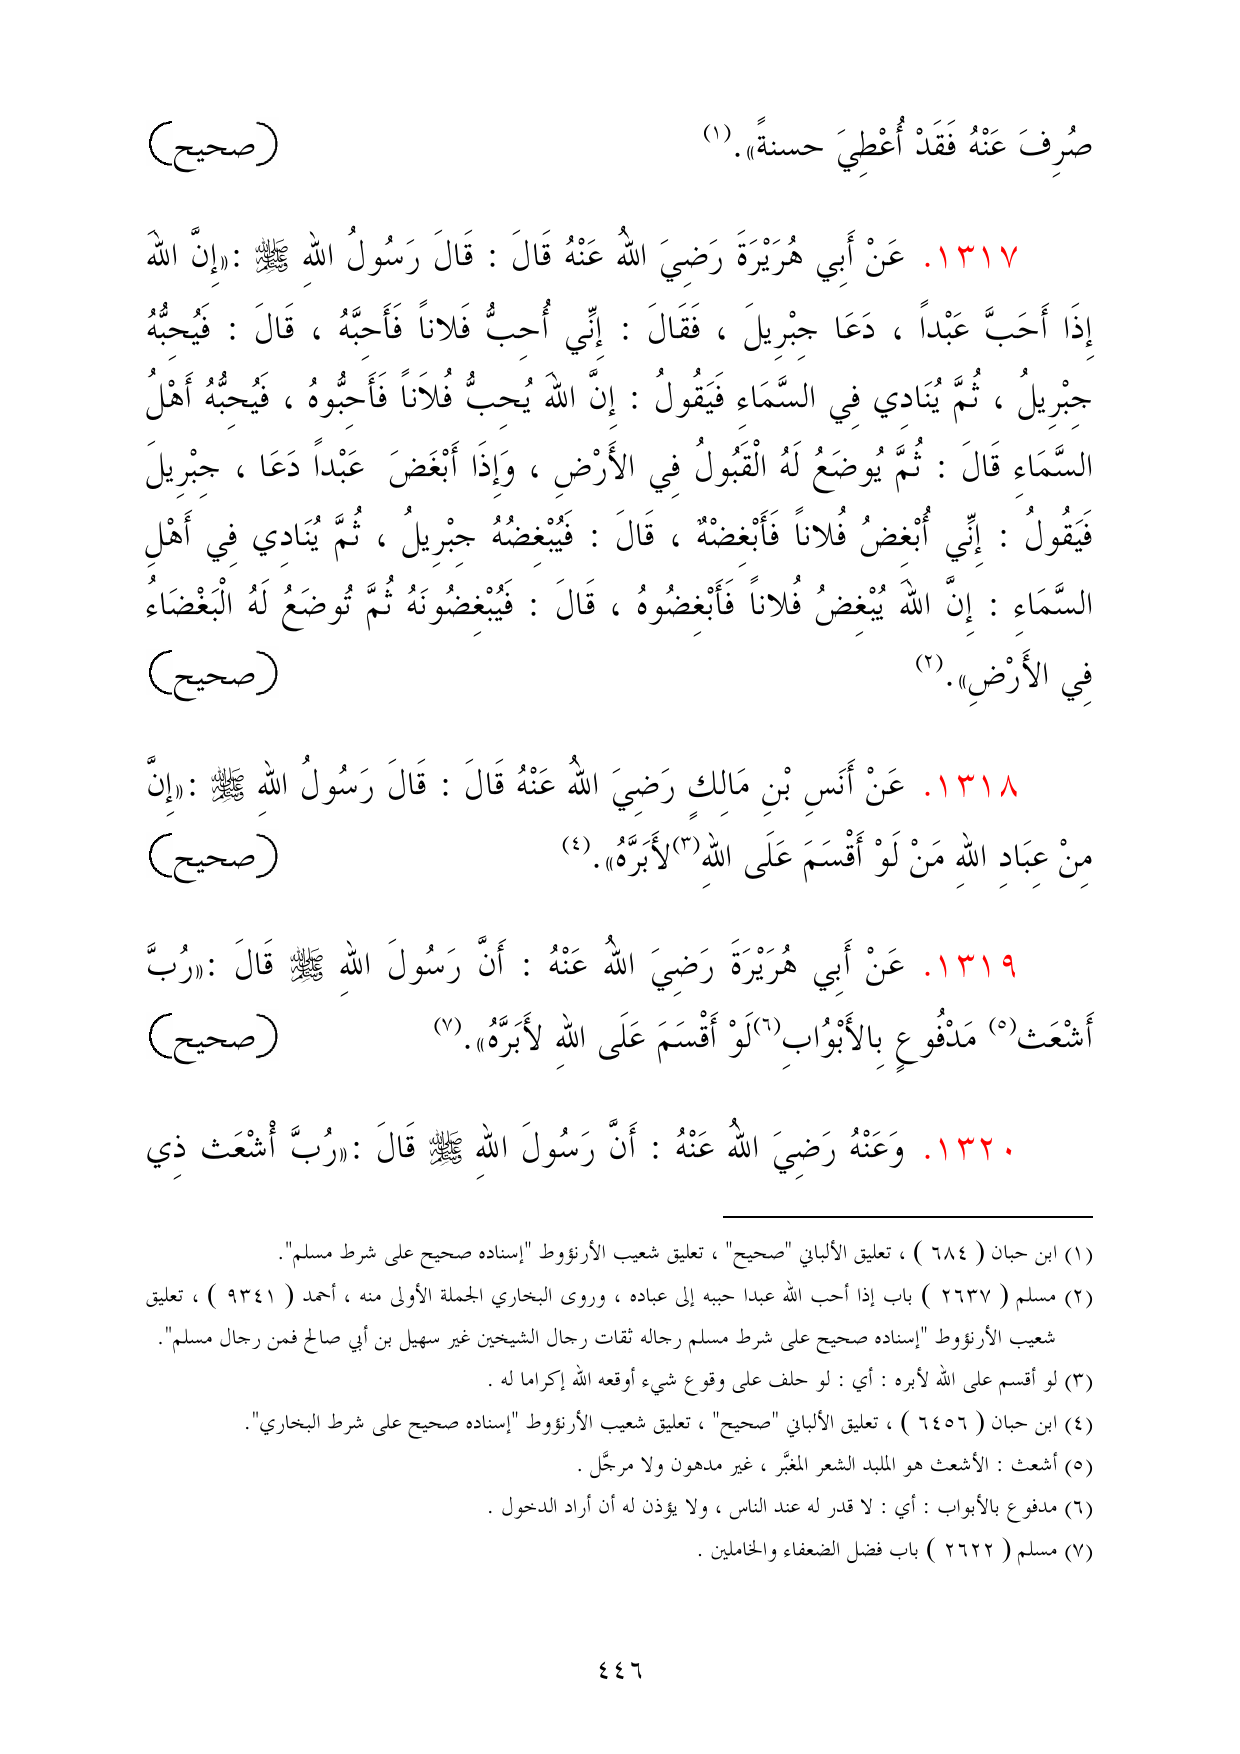 صُرِفَ عَنْهُ فَقَدْ أُعْطِيَ حسنةً».(١) (صحيح)
١٣١٧. عَنْ أَبِي هُرَيْرَةَ رَضِيَ اللهُ عَنْهُ قَالَ : قَالَ رَسُولُ اللهِ ﷺ :«إِنَّ اللهَ
إِذَا أَحَبَّ عَبْداً ، دَعَا جِبْرِيلَ ، فَقَالَ : إِنِّي أُحِبُّ فَلاناً فَأَحِبَّهُ ، قَالَ : فَيُحِبُّهُ
جِبْرِيلُ ، ثُمَّ يُنَادِي فِي السَّمَاءِ فَيَقُولُ : إِنَّ اللهَ يُحِبُّ فُلاَناً فَأَحِبُّوهُ ، فَيُحِبُّهُ أَهْلُ
السَّمَاءِ قَالَ : ثُمَّ يُوضَعُ لَهُ الْقَبُولُ فِي الأَرْضِ ، وَإِذَا أَبْغَضَ عَبْداً دَعَا ، جِبْرِيلَ
فَيَقُولُ : إِنِّي أُبْغِضُ فُلاناً فَأَبْغِضْهٌ ، قَالَ : فَيُبْغِضُهُ جِبْرِيلُ ، ثُمَّ يُنَادِي فِي أَهْلِ
السَّمَاءِ : إِنَّ اللهَ يُبْغِضُ فُلاناً فَأَبْغِضُوهُ ، قَالَ : فَيُبْغِضُونَهُ ثُمَّ تُوضَعُ لَهُ الْبَغْضَاءُ
فِي الأَرْضِ».(٢) (صحيح)
١٣١٨. عَنْ أَنَسِ بْنِ مَالِكٍ رَضِيَ اللهُ عَنْهُ قَالَ : قَالَ رَسُولُ اللهِ ﷺ :«إِنَّ
مِنْ عِبَادِ اللهِ مَنْ لَوْ أَقْسَمَ عَلَى اللهِ(٣)لأَبَرَّهُ».(٤) (صحيح)
١٣١٩. عَنْ أَبِي هُرَيْرَةَ رَضِيَ اللهُ عَنْهُ : أَنَّ رَسُولَ اللهِ ﷺ قَالَ :«رُبَّ
أَشْعَث(٥) مَدْفُوعٍ بِالأَبْوُابِ(٦)لَوْ أَقْسَمَ عَلَى اللهِ لأَبَرَّهُ».(٧) (صحيح)
١٣٢٠. وَعَنْهُ رَضِيَ اللهُ عَنْهُ : أَنَّ رَسُولَ اللهِ ﷺ قَالَ :«رُبَّ أْشْعَث ذِي
(١) ابن حبان ( ٦٨٤ ) ، تعليق الألباني "صحيح" ، تعليق شعيب الأرنؤوط "إسناده صحيح على شرط مسلم".
(٢) مسلم ( ٢٦٣٧ ) باب إذا أحب الله عبدا حببه إلى عباده ، وروى البخاري الجملة الأولى منه ، أحمد ( ٩٣٤١ ) ، تعليق
شعيب الأرنؤوط "إسناده صحيح على شرط مسلم رجاله ثقات رجال الشيخين غير سهيل بن أبي صالح فمن رجال مسلم".
(٣) لو أقسم على الله لأبره : أي : لو حلف على وقوع شيء أوقعه الله إكراما له .
(٤) ابن حبان ( ٦٤٥٦ ) ، تعليق الألباني "صحيح" ، تعليق شعيب الأرنؤوط "إسناده صحيح على شرط البخاري".
(٥) أشعث : الأشعث هو الملبد الشعر المغبَّر ، غير مدهون ولا مرجَّل .
(٦) مدفوع بالأبواب : أي : لا قدر له عند الناس ، ولا يؤذن له أن أراد الدخول .
(٧) مسلم ( ٢٦٢٢ ) باب فضل الضعفاء والخاملين .
٤٤٦